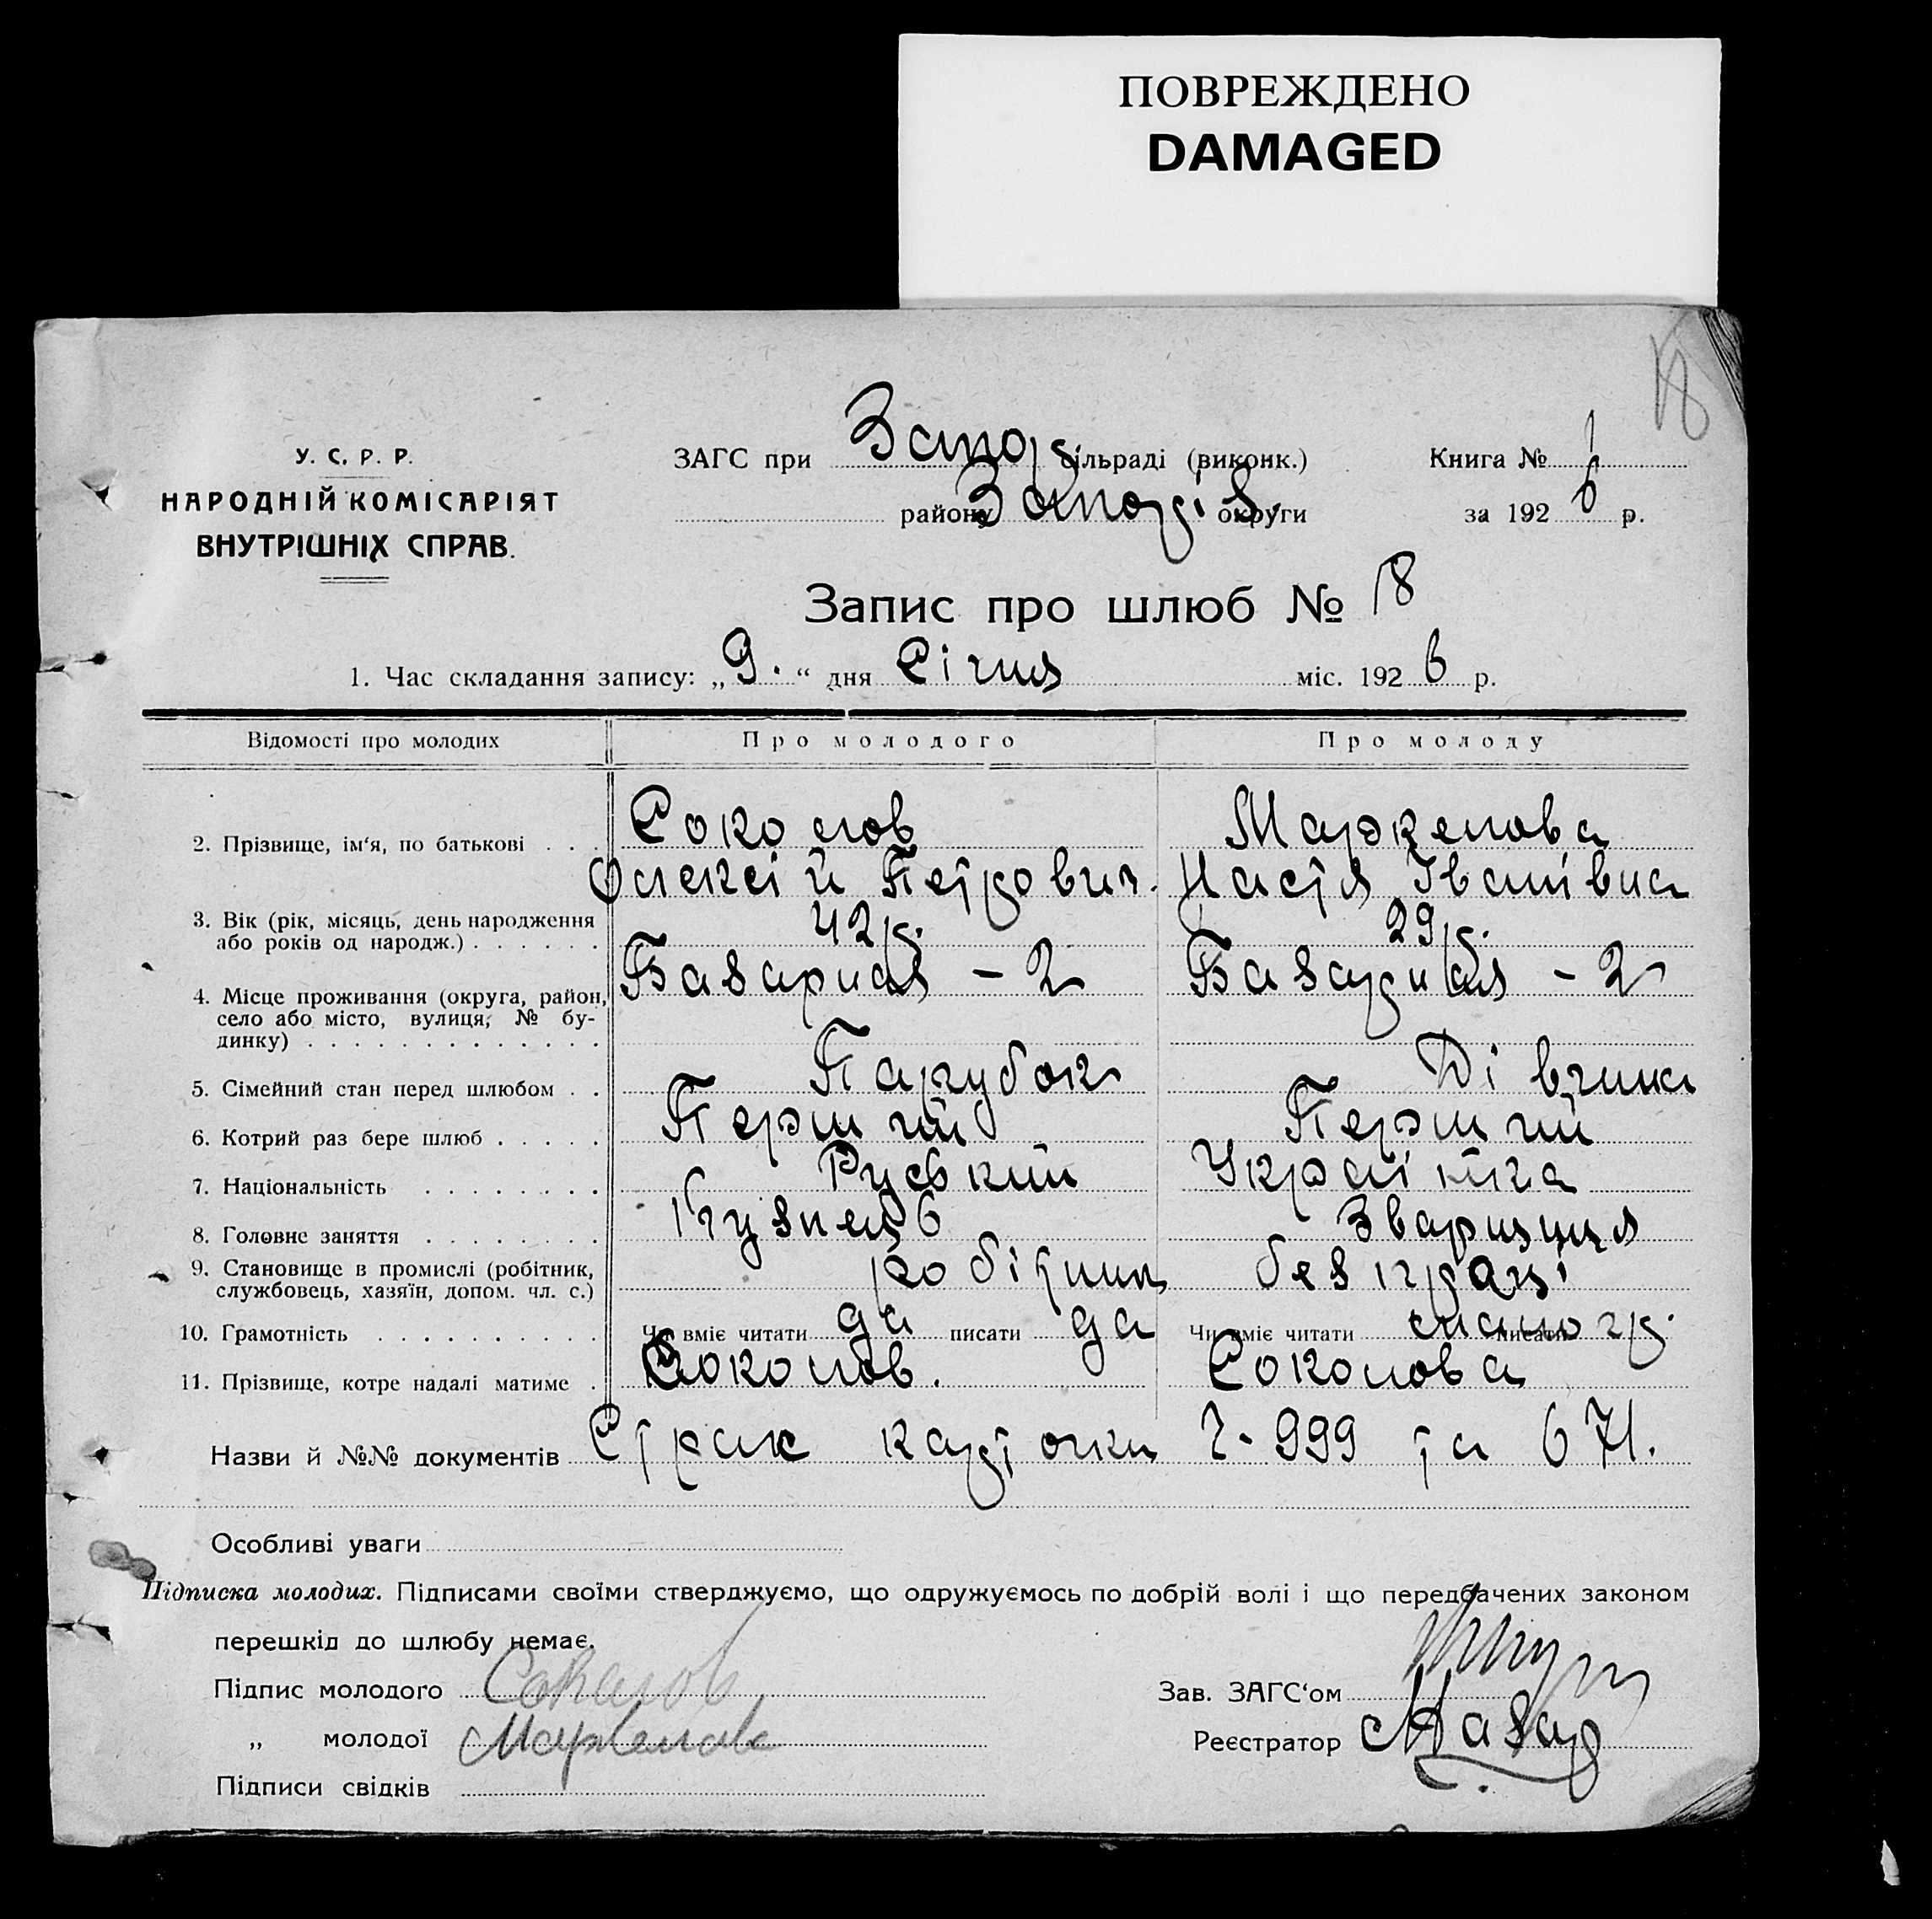 ПОВРЕЖДЕНО
DAMAGED
18
У. С. Р. Р.
НАРОДНІЙ КОМІСАРІЯТ
ВНУТРІШНІХ СПРАВ.
ЗАГС при Запор сільраді (виконк.)
району Запоріз. округи
Книга № 1
за 1926 р.
Запис про шлюб № 18
1. Час складання запису: „9.“ дня Січня міс. 1926 р.
Відомості про молодих Про молодого Про молоду
2. Прізвище, ім'я, по батькові . . . Соколов Олексій Петрович. Маркелова Настя Іванівна
3. Вік (рік, місяць, день народження або років од народж.) . . . . . . 42 р. 29 р.
4. Місце проживання (округа, район, село або місто, вулиця, № будинку) . . . . . . . . . . . . . Базарная - 2 Базарная - 2
5. Сімейний стан перед шлюбом . . Парубок Дівчина
6. Котрий раз бере шлюб . . . . . Перший Перший
7. Національність . . . . . . . . Руський Українка
8. Головне заняття . . . . . . . . Кузнець Зварщиця
9. Становище в промислі (робітник, службовець, хазяїн, допом. чл. с.) робітник без праці
10. Грамотність . . . . . . . . . . Чи вміє читати да писати да Чи вміє читати писати малогр.
11. Прізвище, котре надалі матиме . Соколов. Соколова
Назви й №№ документів Страх карточки 2-999 та 671.
Особливі уваги
Підписка молодих. Підписами своїми стверджуємо, що одружуємось по добрій волі і що передбачених законом
перешкід до шлюбу немає.
Підпис молодого Соколов
„ молодої Маркелова
Підписи свідків
Зав. ЗАГС'ом
Реєстратор Назар